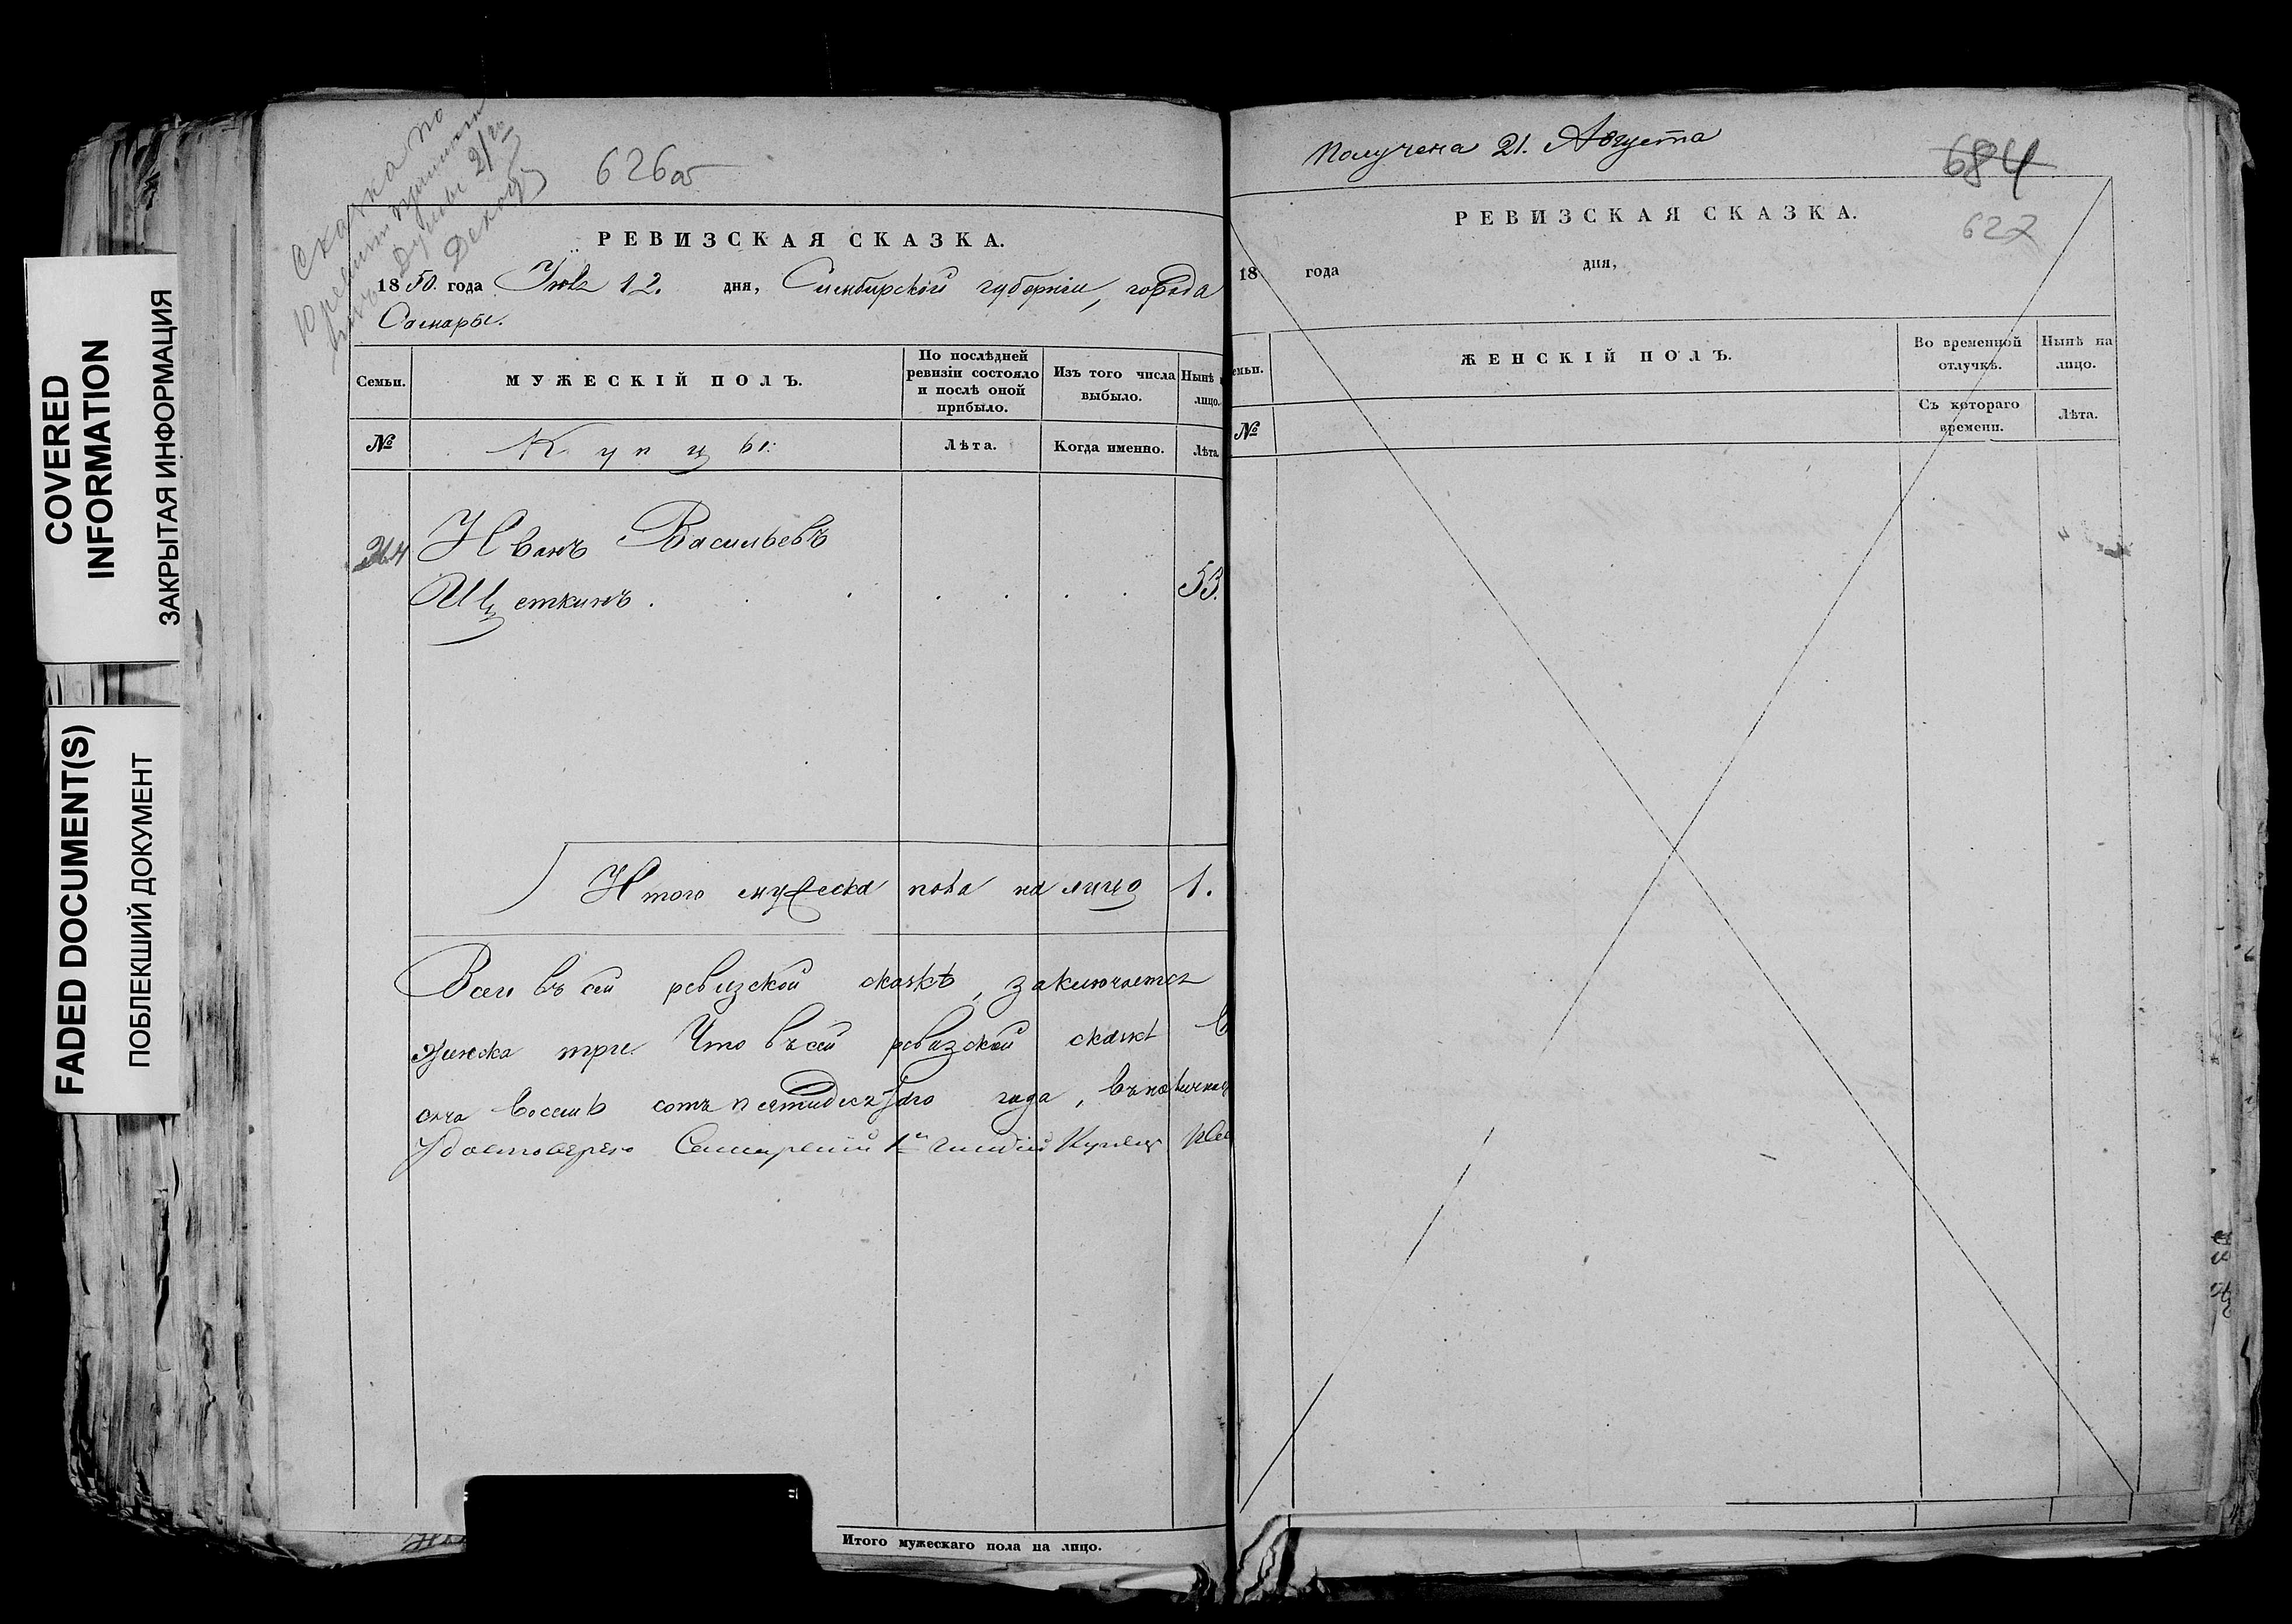 COVERED INFORMATION
ЗАКРЫТАЯ ИНФОРМАЦИЯ
FADED DOCUMENT(S)
ПОБЛЕКШИЙ ДОКУМЕНТ
Сказка по
626об
РЕВИЗСКАЯ СКАЗКА.
1850. года Июля 12. дня, Симбирской губернии, города
Самары.
Семьи.
МУЖЕСКІЙ ПОЛЪ.
По послѣдней ревизіи состояло и послѣ оной прибыло.
Изъ того числа выбыло.
Нынѣ
лицо.
№
Купцы:
Лѣта.
Когда именно.
Лѣта
Иванъ Васильевъ
Щеткинъ . . . . . . . 53.
Итого мужеска пола на лицо 1.
Всего въ сей ревизской сказкѣ, заключается
женска три. Что въ сей ревизской сказкѣ
восемь сотъ пятидесятаго года,
Удостоверяю Самарский 1й гильдии Купец
Итого мужескаго пола на лицо.
Получена 21. Августа
684
627
РЕВИЗСКАЯ СКАЗКА.
18 года дня,
емьи.
ЖЕНСКІЙ ПОЛЪ.
Во временной отлучкѣ.
Нынѣ на лицо.
№
Съ котораго времени.
Лѣта.